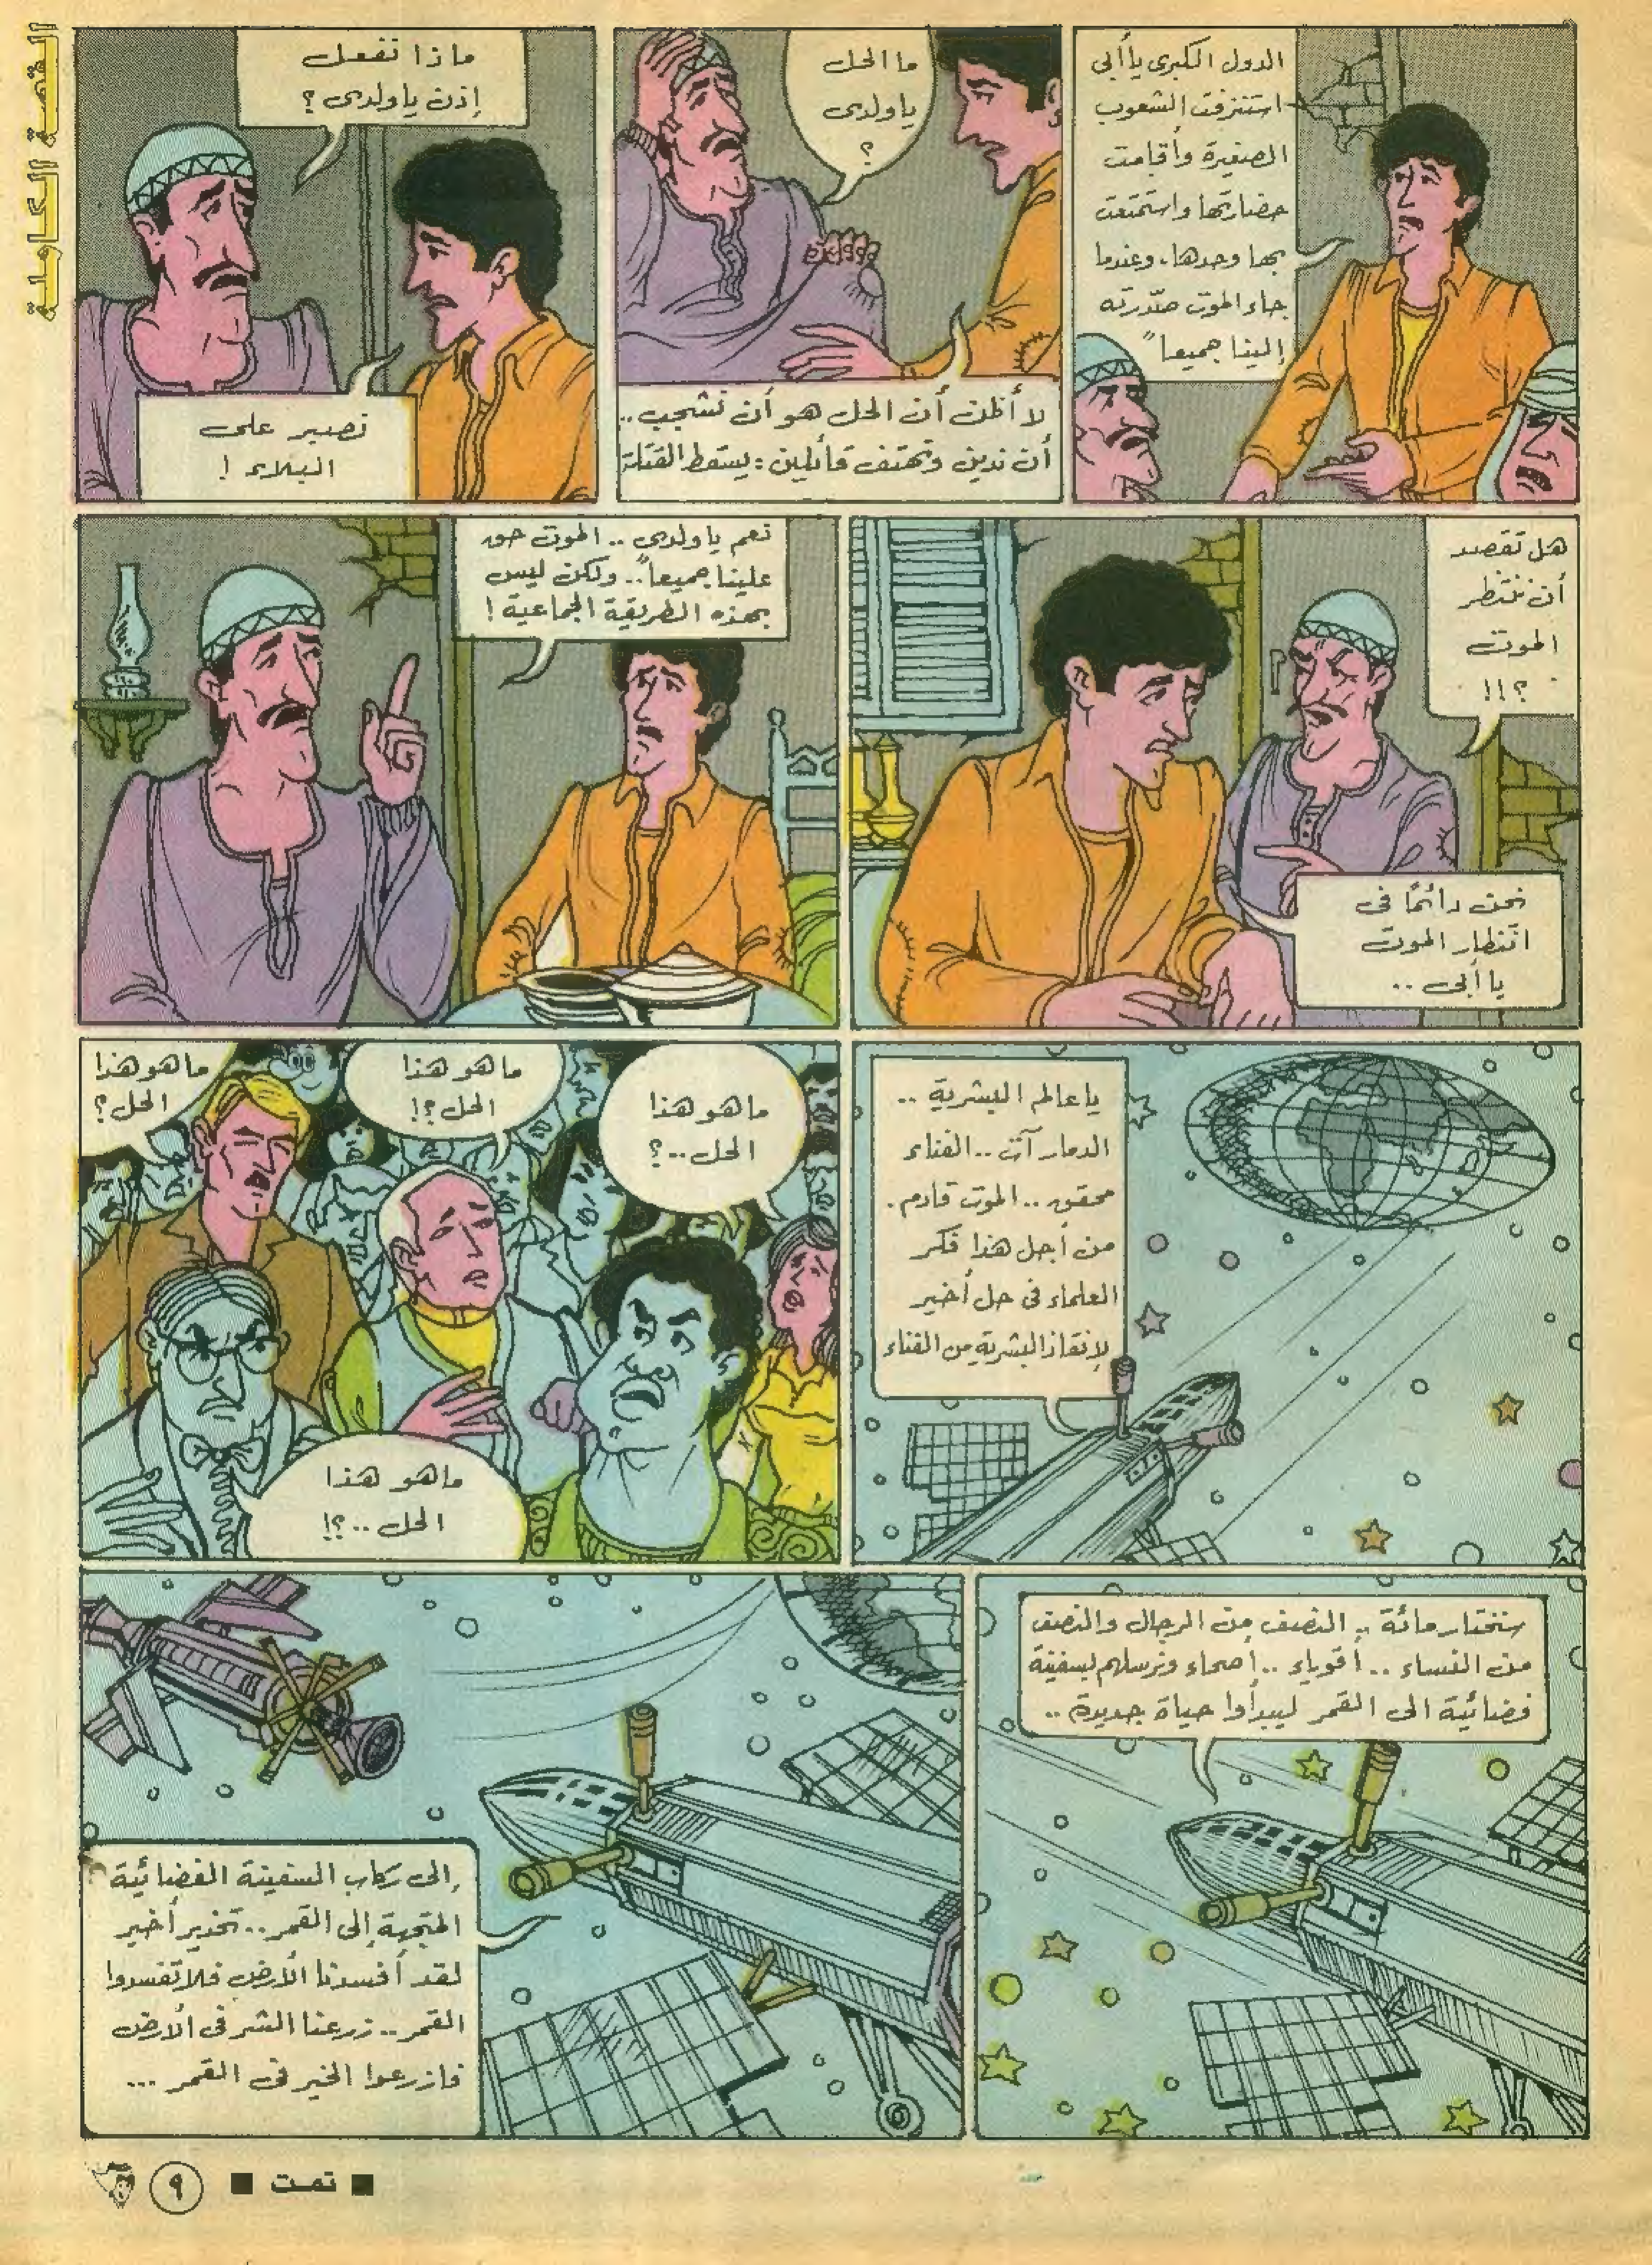 القصة الكاملة
الدول الكبرى يا أبى
استنزفت الشعوب
الصغيرة وأقامت
حضارتها واستمتعت
بها وحدها، وعندما
جاء الموت صدّرته
إلينا جميعاً
ما الحل
يا ولدى
؟
لا أظن أن الحل هو أن نشجب..
أن ندين ونهتف قائلين: يسقط القتلة
ماذا نفعل
إذن يا ولدى؟
نصبر على
البلاء!
هل تقصد
أن ننتظر
الموت
؟!!
نحن دائمًا فى
انتظار الموت
يا أبى..
نعم يا ولدى.. الموت حق
علينا جميعاً.. ولكن ليس
بهذه الطريقة الجماعية!
يا عالم البشرية..
الدمار آت.. الفناء
محقق.. الموت قادم.
من أجل هذا فكر
العلماء فى حل أخير
لإنقاذ البشرية من الفناء
ما هو هذا
الحل..؟
ما هو هذا
الحل؟!
ما هو هذا
الحل؟
ما هو هذا
الحل..؟!
سنختار مائة.. النصف من الرجال والنصف
من النساء.. أقوياء.. أصحاء ونرسلهم بسفينة
فضائية الى القمر ليبدأوا حياة جديدة..
إلى ركاب السفينة الفضائية
المتجهة إلى القمر.. تحذير أخير
لقد أفسدنا الأرض فلا تفسدوا
القمر.. زرعنا الشر فى الأرض
فازرعوا الخير فى القمر...
■ تمت ■ ٩